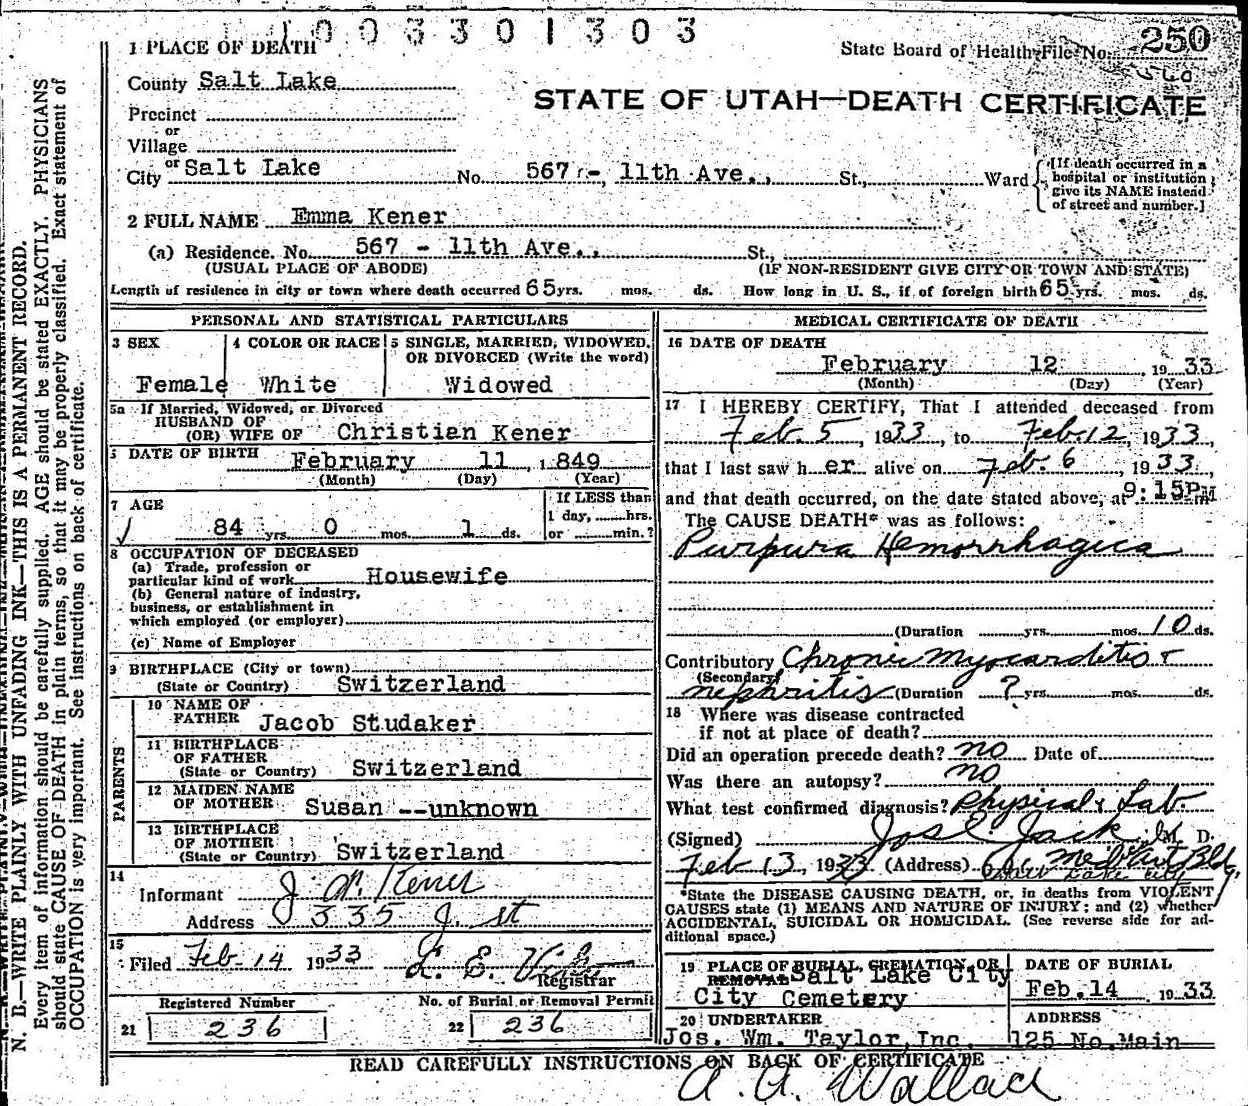 1003301303
State Board of Health File No. 250
560
STATE OF UTAH—DEATH CERTIFICATE
1 PLACE OF DEATH
County Salt Lake
Precinct
or
Village
or
City Salt Lake No. 567 - 11th Ave., St., Ward
[If death occurred in a
hospital or institution
give its NAME instead
of street and number.]
2 FULL NAME Emma Kener
(a) Residence. No. 567 - 11th Ave., St.,
(USUAL PLACE OF ABODE) (IF NON-RESIDENT GIVE CITY OR TOWN AND STATE)
Length of residence in city or town where death occurred 65 yrs. mos. ds. How long in U. S., if of foreign birth 65 yrs. mos. ds.
PERSONAL AND STATISTICAL PARTICULARS
3 SEX
Female
4 COLOR OR RACE
White
5 SINGLE, MARRIED, WIDOWED,
OR DIVORCED (Write the word)
Widowed
5a If Married, Widowed, or Divorced
HUSBAND OF
(OR) WIFE OF Christian Kener
DATE OF BIRTH February 11, 1849
(Month) (Day) (Year)
7 AGE
84 yrs. 0 mos. 1 ds.
If LESS than
1 day, hrs.
or min.?
8 OCCUPATION OF DECEASED
(a) Trade, profession or
particular kind of work Housewife
(b) General nature of industry,
business, or establishment in
which employed (or employer)
(c) Name of Employer
9 BIRTHPLACE (City or town)
(State or Country) Switzerland
PARENTS
10 NAME OF
FATHER Jacob Studaker
11 BIRTHPLACE
OF FATHER
(State or Country) Switzerland
12 MAIDEN NAME
OF MOTHER Susan --unknown
13 BIRTHPLACE
OF MOTHER
(State or Country) Switzerland
14
Informant J. A. Kener
Address 335 J. st
15
Filed Feb 14 1933 L. E.
Registrar
Registered Number
21 236
No. of Burial or Removal Permit
22 236
MEDICAL CERTIFICATE OF DEATH
16 DATE OF DEATH
February 12, 1933
(Month) (Day) (Year)
17 I HEREBY CERTIFY, That I attended deceased from
Feb. 5, 1933, to Feb 12, 1933,
that I last saw her alive on Feb. 6, 1933,
and that death occurred, on the date stated above, at 9:15PM
The CAUSE DEATH* was as follows:
Purpura Hemorrhagica
(Duration yrs. mos. 10 ds.
Contributory Chronic Myocarditis +
(Secondary)
nephritis (Duration ? yrs. mos. ds.
18 Where was disease contracted
if not at place of death?
Did an operation precede death? no Date of
Was there an autopsy? no
What test confirmed diagnosis? Physical & Lab.
(Signed) Jos. E. Jack M. D.
Feb 13, 1933 (Address) Med Art Bldg.
Salt Lake City
*State the DISEASE CAUSING DEATH, or, in deaths from VIOLENT
CAUSES state (1) MEANS AND NATURE OF INJURY; and (2) whether
ACCIDENTAL, SUICIDAL OR HOMICIDAL. (See reverse side for ad-
ditional space.)
19 PLACE OF BURIAL, CREMATION, OR
REMOVAL Salt Lake City
City Cemetery
DATE OF BURIAL
Feb. 14 1933
20 UNDERTAKER
Jos. Wm. Taylor, Inc.
ADDRESS
125 No. Main
READ CAREFULLY INSTRUCTIONS ON BACK OF CERTIFICATE
A. A. Wallace
N. B.—WRITE PLAINLY WITH UNFADING INK—THIS IS A PERMANENT RECORD.
Every item of information should be carefully supplied. AGE should be stated EXACTLY. PHYSICIANS
should state CAUSE OF DEATH in plain terms, so that it may be properly classified. Exact statement of
OCCUPATION is very important. See instructions on back of certificate.